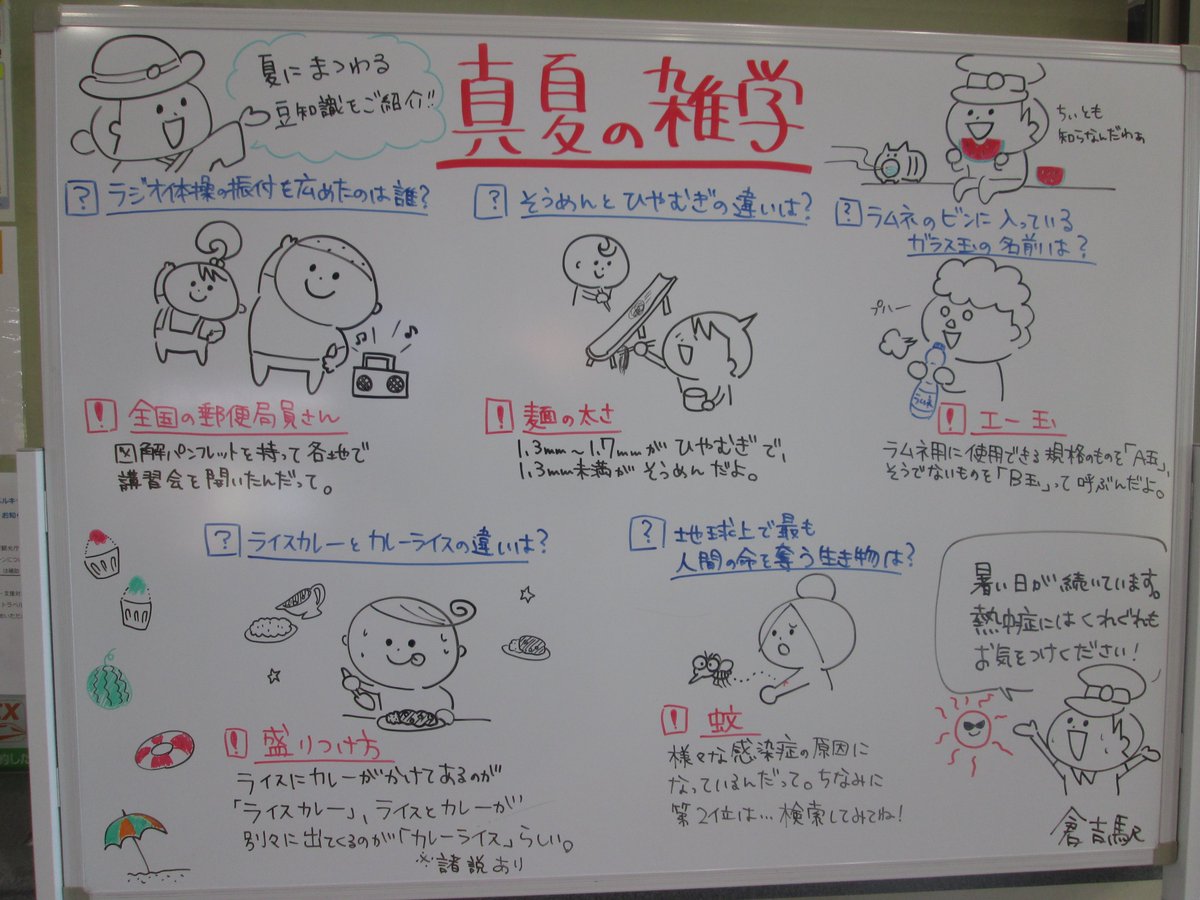 夏にまつわる
豆知識をご紹介!!
真夏の雑学
ちぃとも
知らなんだわぁ
? ラジオ体操の振付を広めたのは誰?
! 全国の郵便局員さん
図解パンフレットを持って各地で
講習会を開いたんだって。
? そうめんとひやむぎの違いは?
! 麺の太さ
1.3mm~1.7mmがひやむぎで、
1.3mm未満がそうめんだよ。
? ラムネのビンに入っている
ガラス玉の名前は?
プハー
ラムネ
! エー玉
ラムネ用に使用できる規格のものを「A玉」、
そうでないものを「B玉」って呼ぶんだよ。
? ライスカレーとカレーライスの違いは?
! 盛りつけ方
ライスにカレーがかけてあるのが
「ライスカレー」、ライスとカレーが
別々に出てくるのが「カレーライス」らしい。
※諸説あり
? 地球上で最も
人間の命を奪う生き物は?
! 蚊
様々な感染症の原因に
なっているんだって。ちなみに
第2位は…検索してみてね!
暑い日が続いています。
熱中症にはくれぐれも
お気をつけください!
倉吉駅